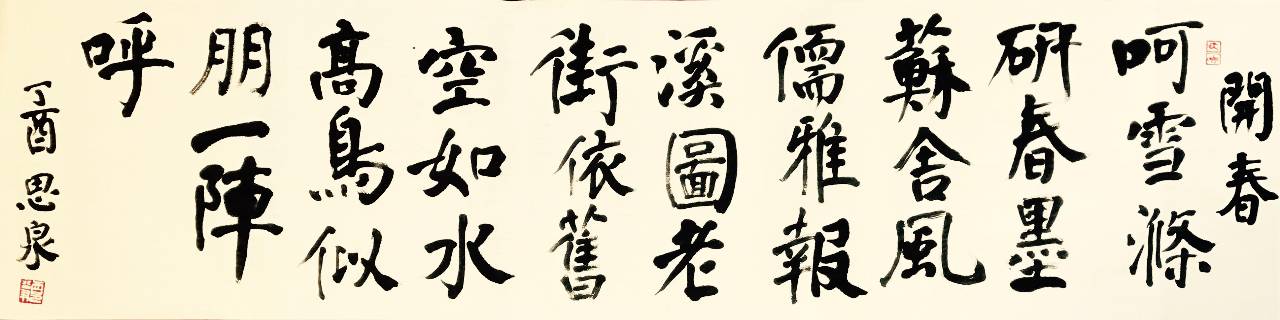 開春
呵雪滌
研春墨
蘇舍風
儒雅報
溪圖老
街依舊
空如水
高鳥似
朋一陣
呼
丁酉思泉